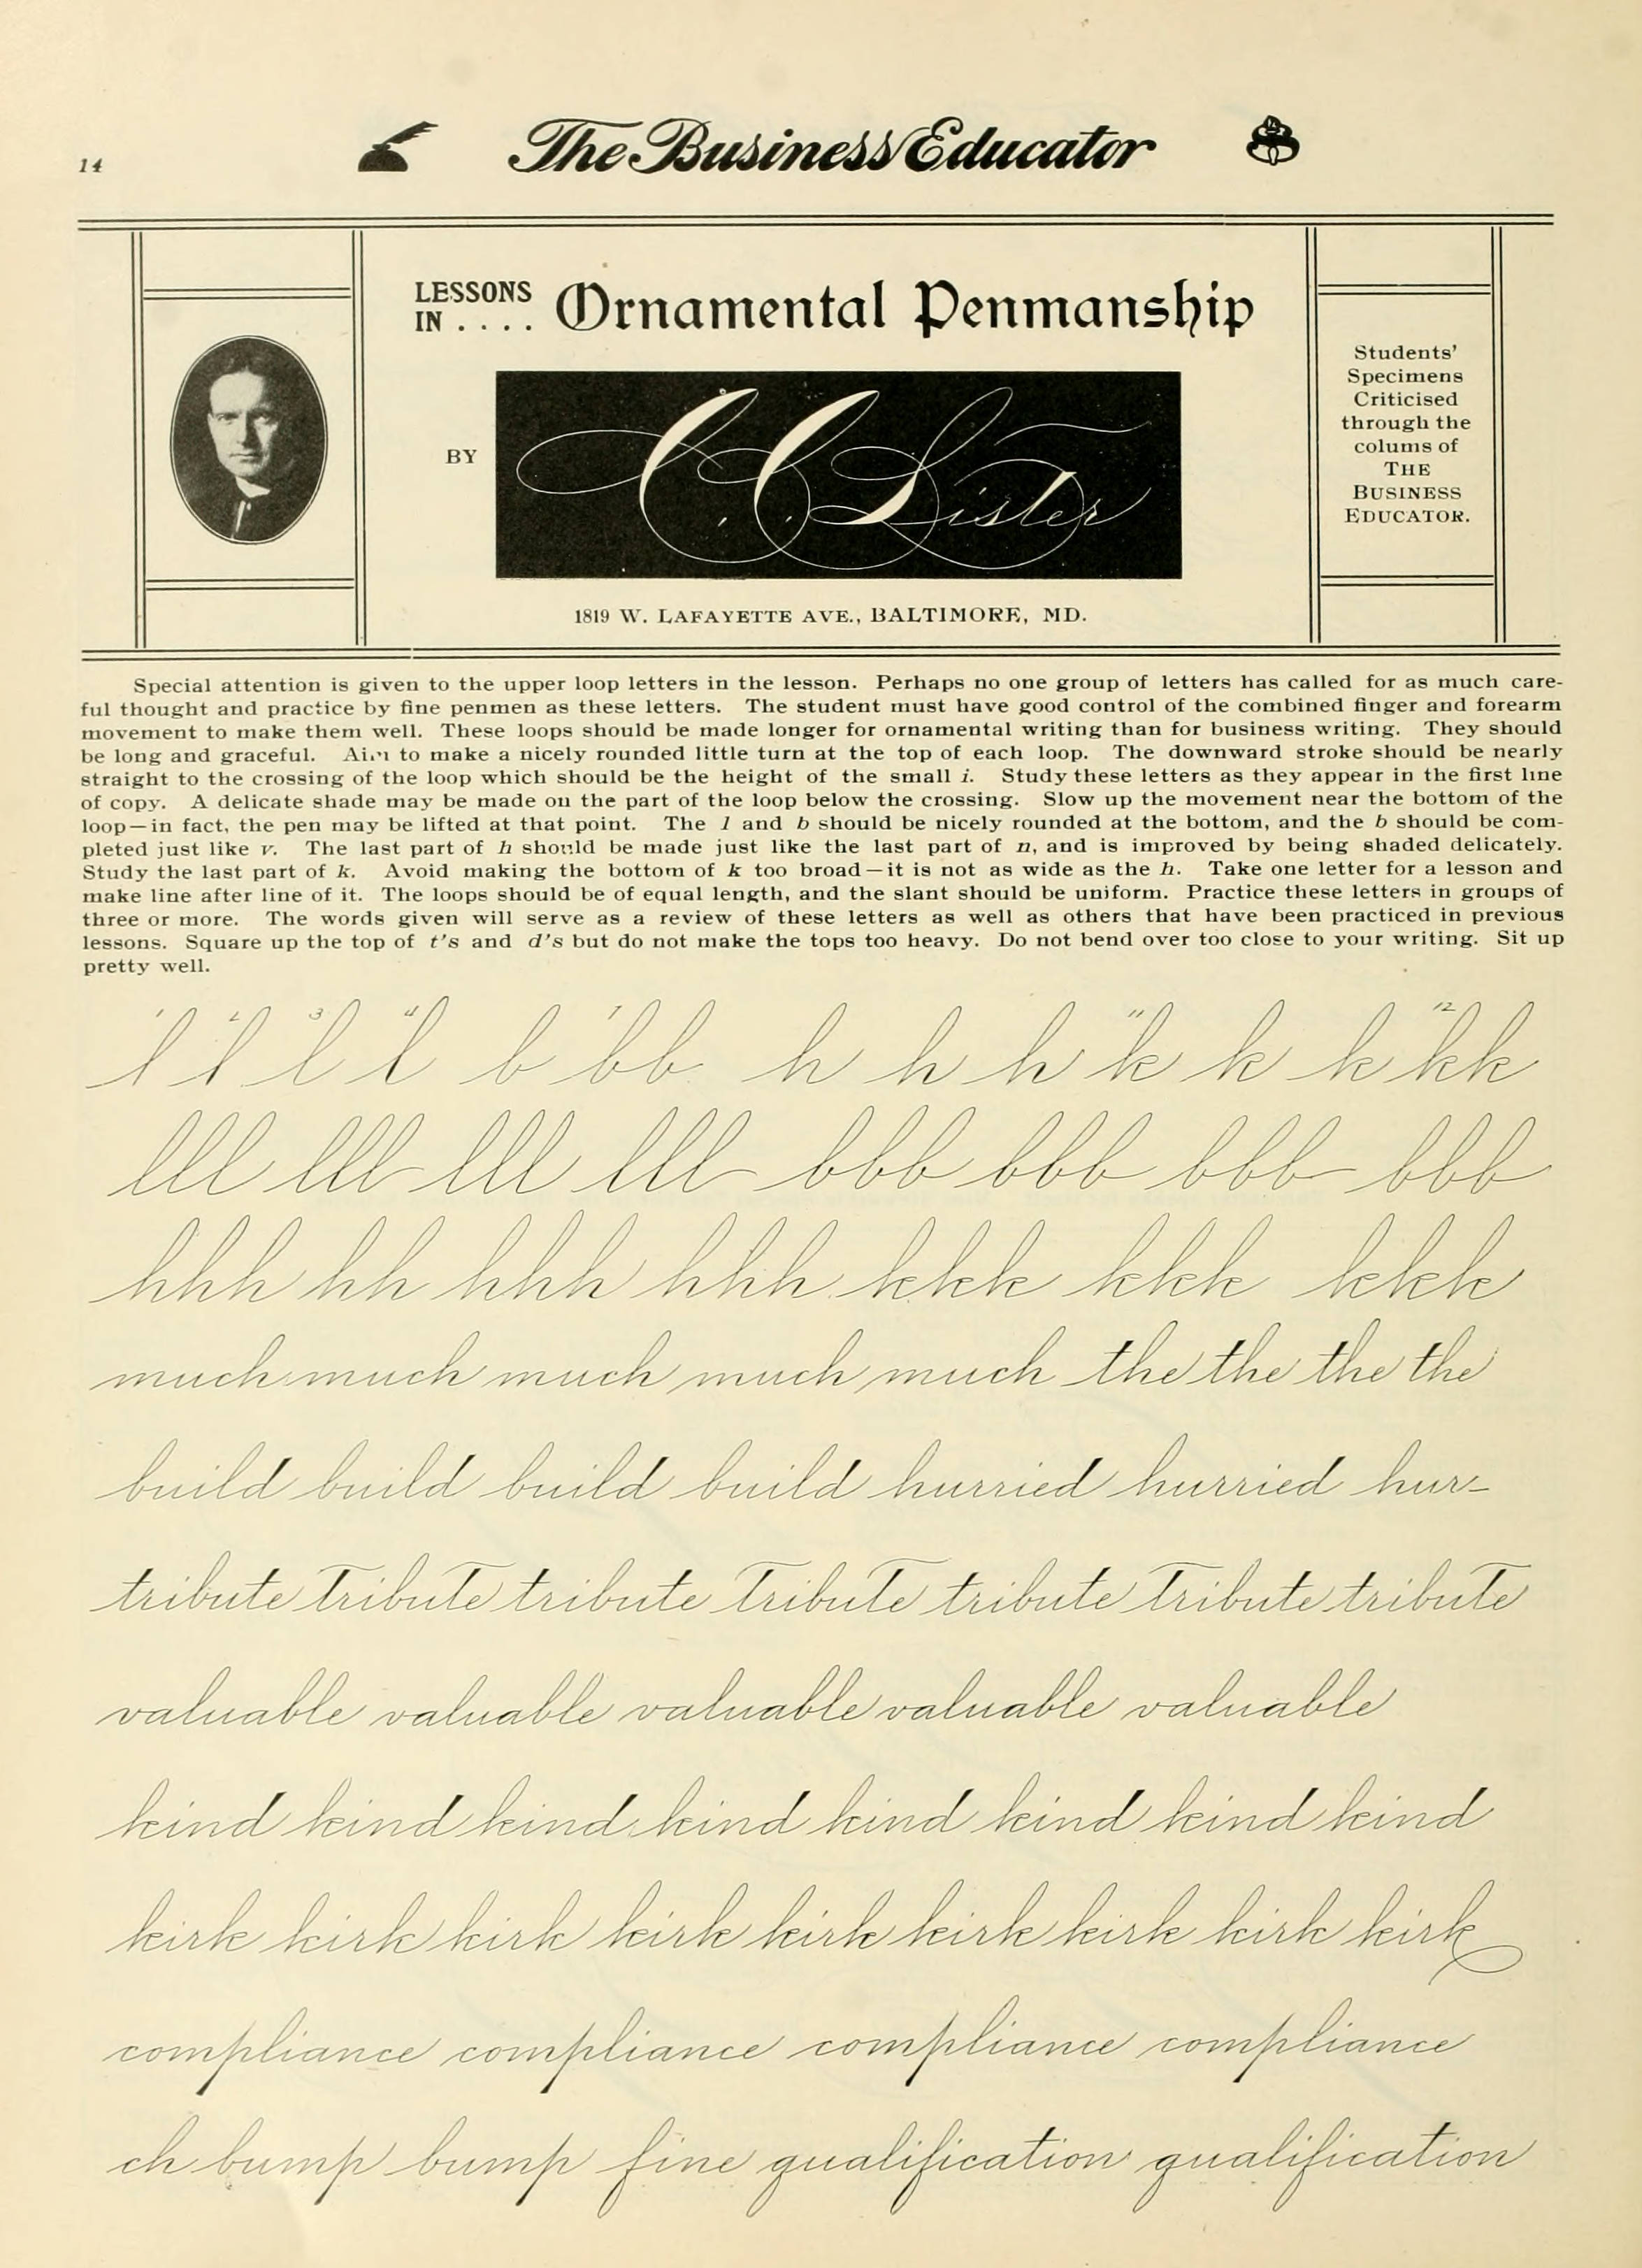 14
The Business Educator
LESSONS
IN . . . .
Ornamental Penmanship
BY
C C Lister
1819 W. LAFAYETTE AVE., BALTIMORE, MD.
Students'
Specimens
Criticised
through the
colums of
THE
BUSINESS
EDUCATOR.
Special attention is given to the upper loop letters in the lesson. Perhaps no one group of letters has called for as much care-
ful thought and practice by fine penmen as these letters. The student must have good control of the combined finger and forearm
movement to make them well. These loops should be made longer for ornamental writing than for business writing. They should
be long and graceful. Aim to make a nicely rounded little turn at the top of each loop. The downward stroke should be nearly
straight to the crossing of the loop which should be the height of the small i. Study these letters as they appear in the first line
of copy. A delicate shade may be made on the part of the loop below the crossing. Slow up the movement near the bottom of the
loop—in fact, the pen may be lifted at that point. The l and b should be nicely rounded at the bottom, and the b should be com-
pleted just like v. The last part of h should be made just like the last part of n, and is improved by being shaded delicately.
Study the last part of k. Avoid making the bottom of k too broad—it is not as wide as the h. Take one letter for a lesson and
make line after line of it. The loops should be of equal length, and the slant should be uniform. Practice these letters in groups of
three or more. The words given will serve as a review of these letters as well as others that have been practiced in previous
lessons. Square up the top of t's and d's but do not make the tops too heavy. Do not bend over too close to your writing. Sit up
pretty well.
l l l l b bb h h h k k k kk
lll lll lll lll bbb bbb bbb bbb
hhh hh hhh hhh kkk kkk kkk
much much much much much the the the the
build build build build hurried hurried hur-
tribute tribute tribute tribute tribute tribute tribute
valuable valuable valuable valuable valuable
kind kind kind kind kind kind kind kind
kirk kirk kirk kirk kirk kirk kirk kirk kirk
compliance compliance compliance compliance
ch bump bump fine qualification qualification